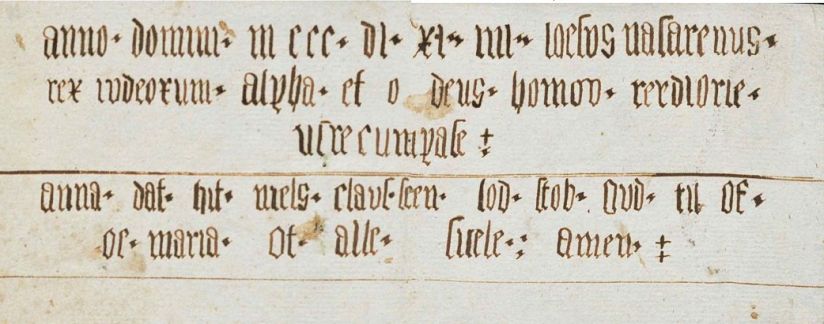 anno · domini · m ccc · di · xi · iiii · ioesvs nasarenus ·
rex ivdeorum · alpha · et o deus · homov · rexdiorie ·
vcre cum pase ⁝
anna · dat · hit · niels · clavs · seen · lod · stob · Gvd · til of ·
oc · maria · Ot · alle · siele · : amen · ⁝